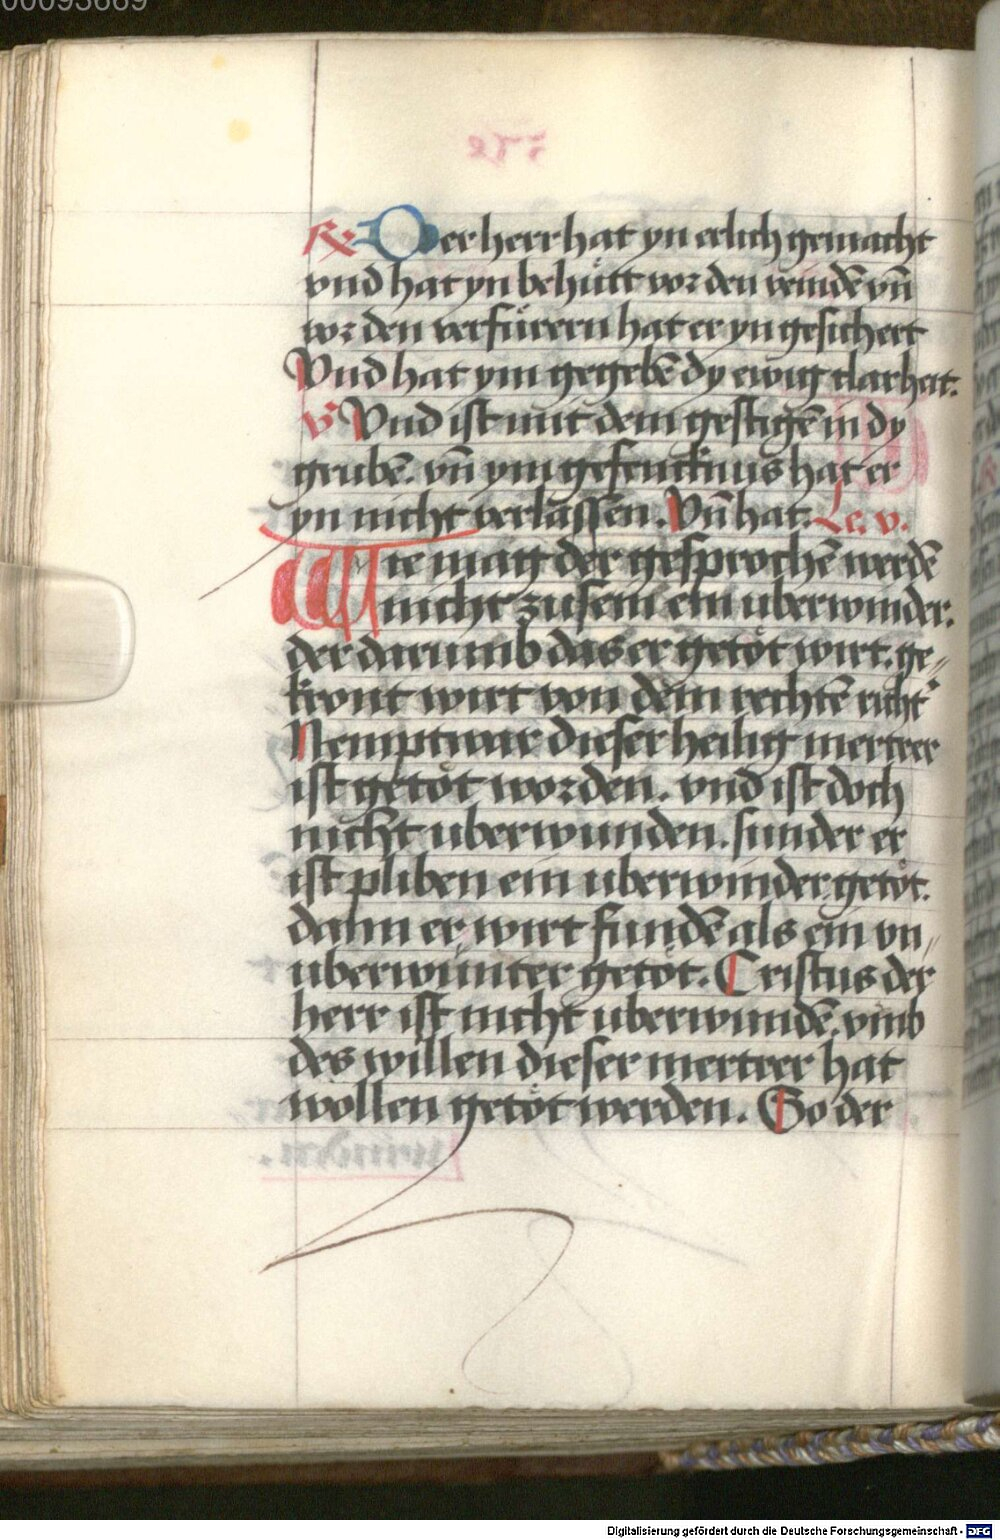 00093669
℟ Der herr hat yn erlich gemacht
vnd hat yn behütt vor den veindē vn̄
vor den verfürern hat er yn gesichert
Vnd hat ym gegebē dy ewig clarheit.
V̾ Vnd ist mit dem gestigē in dy
grubē. vn̄ ym gefencknus hat er
yn nicht verlassen. Vn̄ hat. Lc. v.
Wie mag der gesprochē werdē
nicht zusein ein uberwinder.
der darumb das er getöt wirt. ge〃
kront wirt von dem rechtē richt᾽
Nempt war dieser heilig mertrer
ist getöt worden. vnd ist doch
nicht uberwunden. sunder er
ist pliben ein uberwinder getöt.
dann er wirt fundē als ein vn〃
uberwunter getöt. Cristus der
herr ist nicht uberwundē. vmb
des willen dieser mertrer hat
wöllen getöt werden. So der
Digitalisierung gefördert durch die Deutsche Forschungsgemeinschaft - DFG